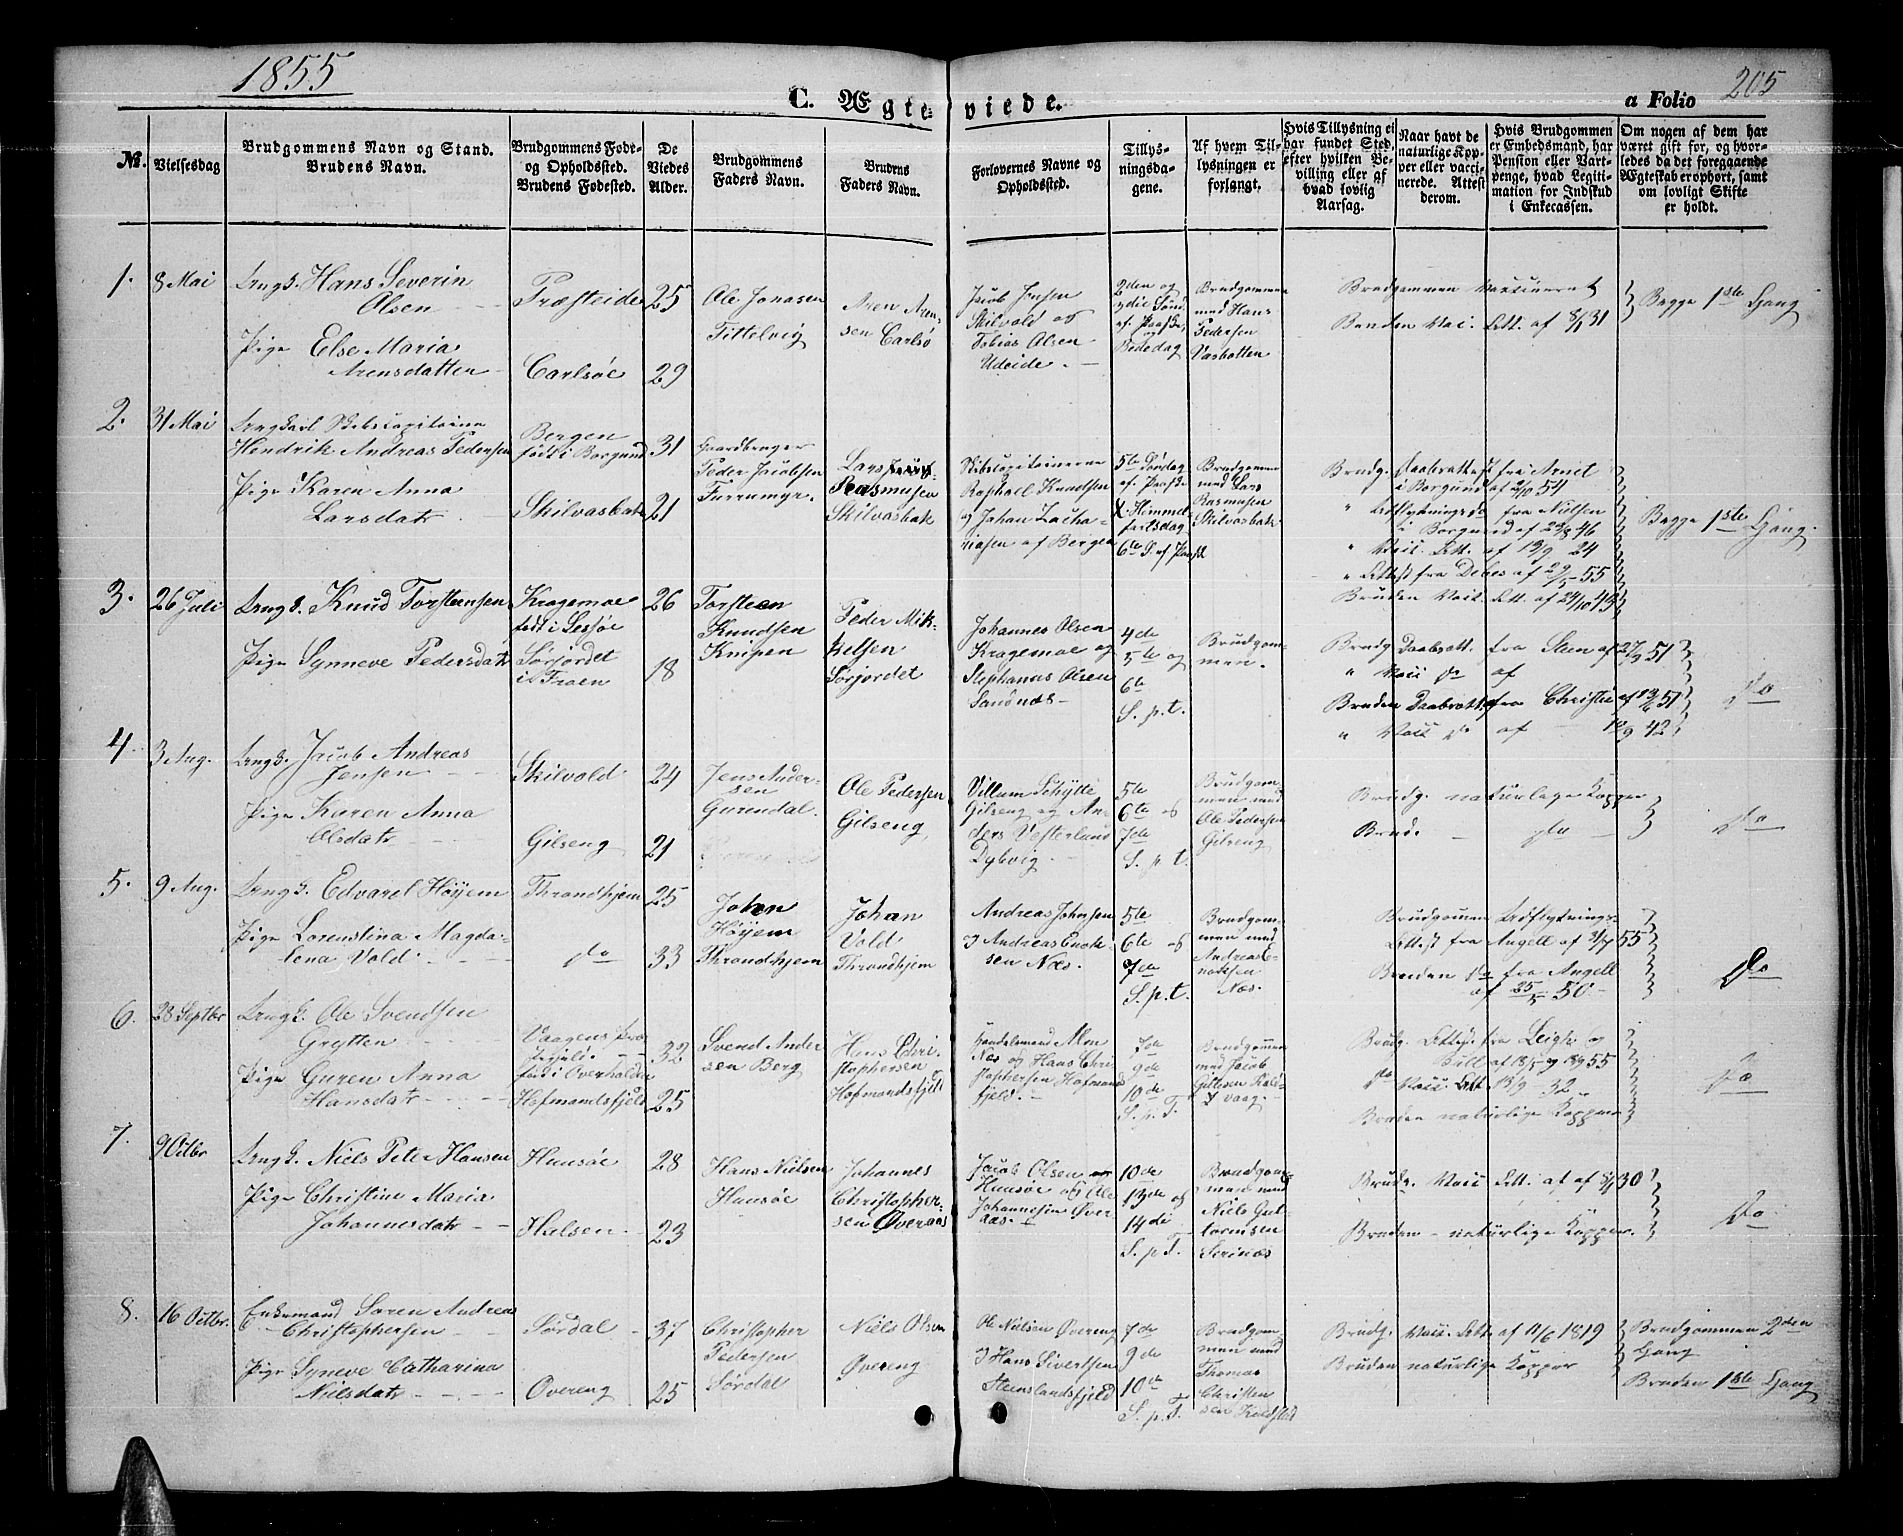 1855
205
C. Ægteviede.
a Folio
No.
Vielsesdag
Brudgommens Navn og Stand.
Brudens Navn.
Brudgommens Føde-
og Opholdsted.
Brudens Fødested.
De
Viedes
Alder.
Brudgommens
Faders Navn.
Brudens
Faders Navn.
Forlovernes Navne og
Opholdsted.
Tillys-
ningsda-
gene.
Af hvem Til-
lysningen er
forlangt.
Hvis Tillysning ei
har fundet Sted,
efter hvilken Be-
villing eller af
hvad lovlig
Aarsag.
Naar havt de
naturlige Kop-
per eller vacci-
nerede. Attest
derom.
Hvis Brudgommen
er Embedsmand, har
Pension eller Vart-
penge, hvad Legiti-
mation for Indskud
i Enkecassen.
Om nogen af dem har
været gift for, og hvor-
ledes da det foregaaende
Ægteskab er ophørt, samt
om lovligt Skifte
er holdt.
1. 8 Mai
Ungk. Hans Severin
Olsen
Pige Else Maria
Arensdatter
Præsteide
Carlsöe
25
29
Ole Jonasen
Tittelvig
Aren Aren-
sen Carlsö
Jacob Jensen
Skilvold og
Tobias Olsen
Udeide.
2den og
3die Sönd.
af. Paaske
og
Bededag
Brudgommen
med Hans
Pedersen
Vasbotten
Brudgommen Vaccineret
Bruden Vac. Att. af 8/1 31
Begge 1ste Gang
2. 31 Mai
Ungkarl Skibscapitaine
Hendrik Andreas Pedersen
Pige Karen Anna
Larsdatr
Bergen
födt i Borgund
Skilvasbak
31
21
Gaardbruger
Peder Jacobsen
Furrumyr.
Lars
Rasmusen
Skilvasbak
Skibscapitainerne
Raphael Knudsen
og Johan Zacha-
riasen af Bergen
5te Söndag
af. Paaske
X. Himmel
fartsdag
6te S. af. Paaske
Brudgommen
med Lars
Rasmusen
Skilvasbak
Brudg. Daabsattest fra Arnet
i Borgund af 2/10 54
" Udflytnings do fra Nielsen
i Borgund af 23/8 46
" Vacc. Att. af 19/9 24
" Attest fra Debes af 29/5 55
Bruden Vacc. Att. af 24/10 43
Begge 1ste Gang.
3. 26 Juli
Ungk. Knud Torsteensen
Pige Synneve Pedersdatr
Kragemoe
födt i Lessöe
Sörjordet
i Froen
26
18
Torsteen
Knudsen
Knipen
Peder Mik-
kelsen
Sörjordet
Johannes Olsen
Kragemoe og
Stephanus Olsen
Sandnæs
4de
5te og
6te
S. p. t.
Brudgom-
men.
Brudg. Daabsatt. fra Steen af 27/9 51
" Vacc do af
Bruden Daabsatt. fra Christie af 13/6 51
" Vacc do af 10/9 42
Do
4. 3 Aug.
Ungk. Jacob Andreas
Jensen
Pige Karen Anna
Olsdatr
Skilvold
Gilseng
24
21
Jens Ander-
sen
Gurendal.
Ole Pedersen
Gilseng
Villum Schytte
Gilseng og An-
ders Vesterlund
Dybvig.
5te
6te og
7de
S. p. t.
Brudgom-
men med
Ole Pedersen
Gilseng
Brudg. naturlige Kopper
Brud. do
Do
5. 9 Aug.
Ungk. Edvard Höyem
Pige Lorenstina Magda-
lena Vold
Throndhjem
do
25
33
Johan
Höyem
Throndhjem
Johan
Vold
Throndhjem
Andreas Johnsen
& Andreas Enok-
sen Næs.
5te
6te og
7de
S. p. t.
Brudgom-
men med
Andreas E-
noksen
Næs.
Brudgommen Udflytnings-
Attest fra Angell af 31/7 55
Bruden do fra Angell
af 25/5 50
Do
6. 28 Septbr
Ungk. Ole Svendsen
Grytten
Pige Guren Anna
Hansdatr
Vaagens Præ
födt i Overhalden
Hofmandsfjeld
32
25
Svend Ander
sen Berg
Hans Chri-
stophersen
Hofmandsfjeld
Handelsmand Mon
Næs og Hans Chri
stophersen Hofmands
fjeld.
7de
9de
10de
S. p. T.
Brudgommen
med Jacob
vaag.
Brudg. Attest fra Leigh og
af 18/5 og 18/9 55
do Vacc. Att 13/9 32
Bruden naturlige Kopper
Do
7. 9 Octbr
Ungk. Niels Peter Hansen
Pige Christine Maria
Johannesdatr
Huusöe
Halsen
28
23
Hans Nielsen
Huusöe
Johannes
Christopher-
sen Överaas
Jacob Olsen
Huusöe og Ole
Johannesen Över
aas.
10de
13de og
14de
S. p. T.
Brudgom-
men med
Niels Gut-
tormsen
Serinæs
Brudg. Vacc. Att. af 8/1 30
Bruden - naturlige Kopper.
Do
8. 16 Octbr.
Enkemand Soren Andreas
Christophersen
Pige Syneve Catharina
Nilsdatr
Sördal
Overeng
37
25
Christopher
Pedersen
Sördal
Niels Olsen
Övereng
Ole Nielsen Övereng
& Hans Sivertsen
Steenslandsfjeld
7de
9de
10de
S. p. T.
Brudgom
men med
Thomas
Christen
sen
Brudg. Vacc. Att. af 11/6 1819
Bruden naturlige Kopper
Brudgommen 2den
Gang
Bruden 1ste Gang